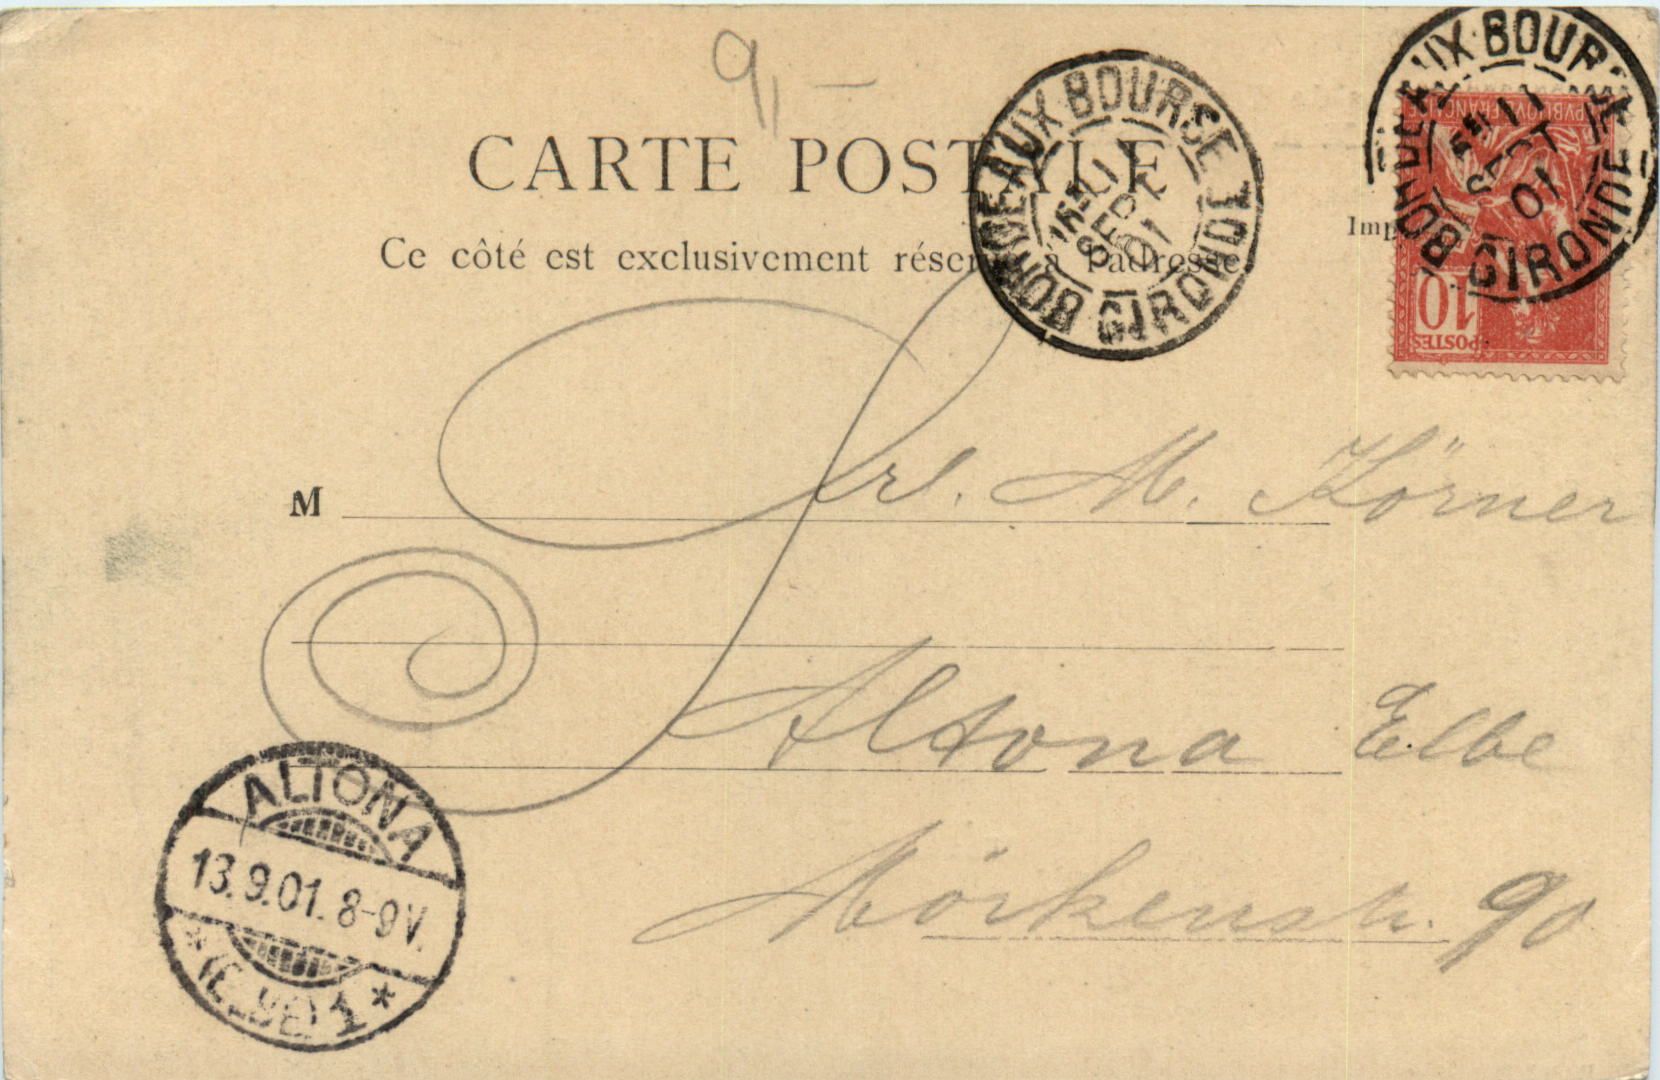 9,—
CARTE POSTALE
Ce côté est exclusivement réservé à l'adresse
BORDEAUX BOURSE
11
SEPT
01
GIRONDE
BORDEAUX BOURSE
11
SEPT
01
GIRONDE
REPVBLIQVE FRANÇAISE
10
POSTES
Imp
M Frl. M. Körner
Altona Elbe
Mörkenstr. 90
ALTONA
13.9.01. 8-9V.
* (ELBE) 1 *